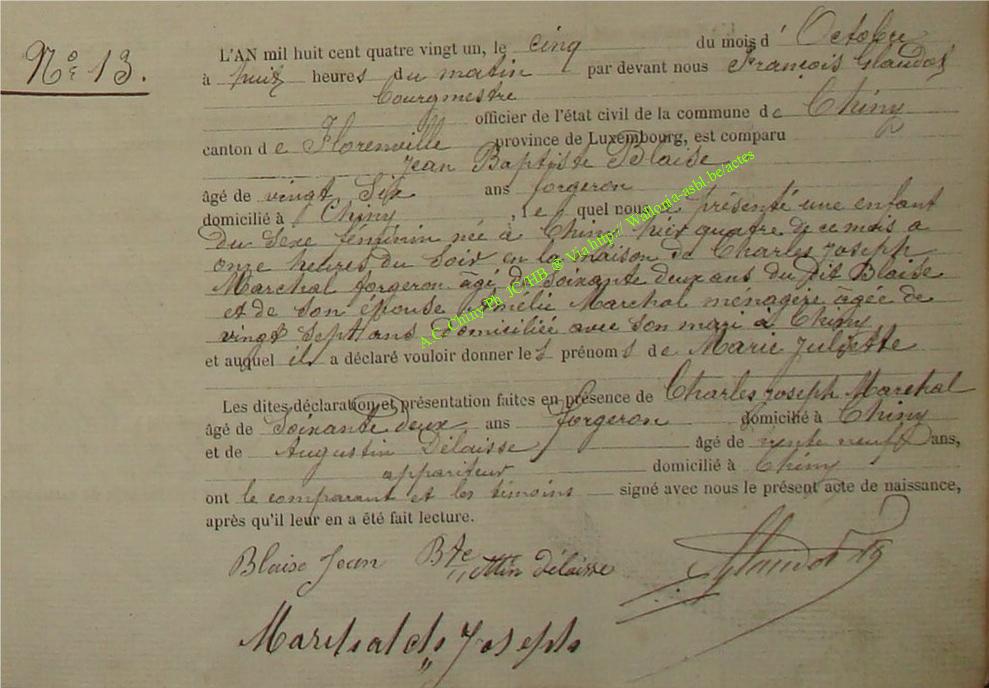 N° 13.
L'AN mil huit cent quatre vingt un, le cinq du mois d' Octobre
à huit heures du matin par devant nous François Glaudot
bourgmestre
officier de l'état civil de la commune de Chiny
canton de Florenville province de Luxembourg, est comparu
Jean Baptiste Blaise
âgé de vingt six ans forgeron
domicilié à Chiny, le quel nous a présenté une enfant
du sexe féminin née à Chiny hier quatre de ce mois a
onze heures du soir en la maison de Charles Joseph
Marchal forgeron âgé de soixante deux ans du dit Blaise
et de son épouse Amélie Marchal ménagère âgée de
vingt sept ans domiciliée avec son mari à Chiny
et auquel il a déclaré vouloir donner les prénoms de Marie Juliette
Les dites déclaration et présentation faites en présence de Charles Joseph Marchal
âgé de Soixante deux ans forgeron domicilié à Chiny
et de Augustin Délaisse âgé de neuf ans,
appariteur domicilié à Chiny
ont le comparant et les témoins signé avec nous le présent acte de naissance,
après qu'il leur en a été fait lecture.
Blaise Jean Bte
Délaisse
Glaudot
Marchal Joseph
A.C.Chiny Ph JC/HB @ Via http:// Wallonia-asbl.be/actes